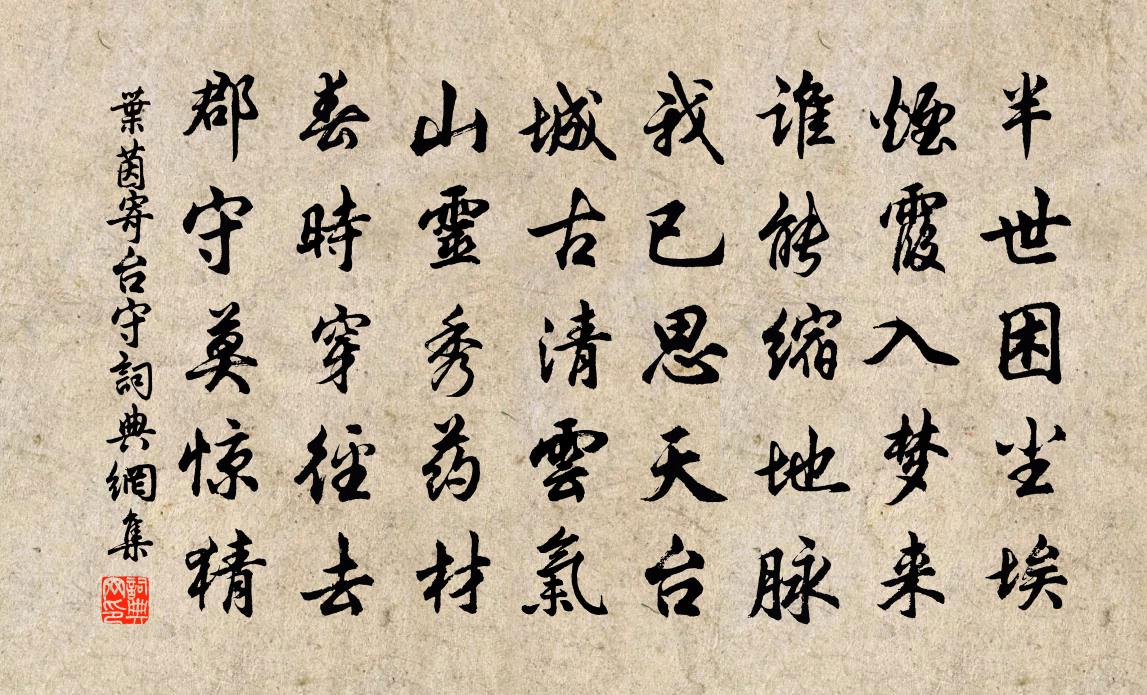 半世困尘埃
煙霞入梦来
谁能缩地脉
我已思天台
城古清雲氣
山靈秀药材
春時穿徑去
郡守莫惊猜
葉茵寄台守詞典網集
詞典
网印